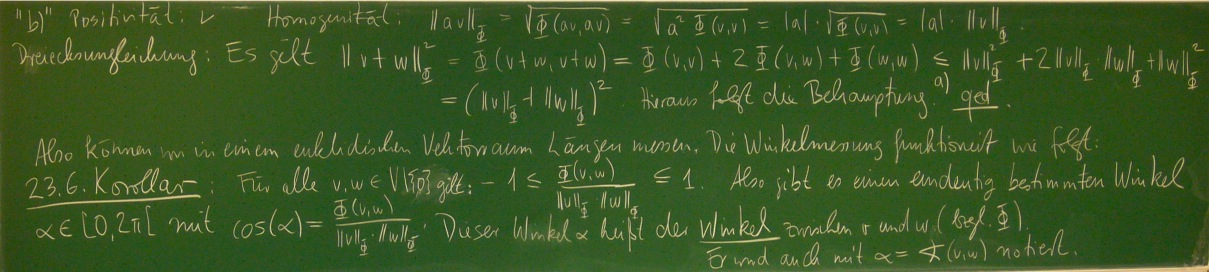 "b)" Positivität: ✓ Homogenität: ||av||_Φ = √Φ(av,av) = √a² Φ(v,v) = |a|·√Φ(v,v) = |a|·||v||_Φ.
Dreiecksungleichung: Es gilt ||v+w||²_Φ = Φ(v+w,v+w) = Φ(v,v) + 2 Φ(v,w) + Φ(w,w) ≤ ||v||²_Φ + 2||v||_Φ ||w||_Φ + ||w||²_Φ
a)
= (||v||_Φ + ||w||_Φ)². Hieraus folgt die Behauptung. qed.
Also können wir in einem euklidischen Vektorraum Längen messen. Die Winkelmessung funktioniert wie folgt:
23.6. Korollar: Für alle v,w ∈ V\{0} gilt: -1 ≤ Φ(v,w) / ||v||_Φ ||w||_Φ ≤ 1. Also gibt es einen eindeutig bestimmten Winkel
α ∈ [0,2π[ mit cos(α) = Φ(v,w) / ||v||_Φ·||w||_Φ. Dieser Winkel α heißt der Winkel zwischen v und w (bzgl. Φ).
Er wird auch mit α = ∢(v,w) notiert.